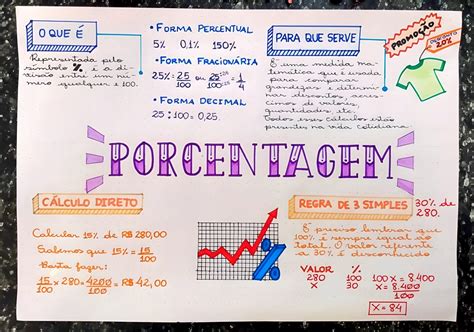 O QUE É
Representada pelo
símbolo % é a di-
visão entre um nú-
mero qualquer e 100.
• FORMA PERCENTUAL
5% 0,1% 150%
• FORMA FRACIONÁRIA
25% = 25/100 ou 25÷25/100÷25 = 1/4
• FORMA DECIMAL
25 : 100 = 0,25.
PARA QUE SERVE
É uma medida ma-
temática que é usada
para comparar
grandezas e determi-
nar descontos, acrés-
cimos de valores,
quantidades, etc.
Todos esses cálculos estão
presentes na vida cotidiana.
PROMOÇÃO
20%
PORCENTAGEM
CÁLCULO DIRETO
Calcular 15% de R$ 280,00
Sabemos que 15% = 15/100
Basta fazer:
15/100 x 280 = 4200/100 = R$ 42,00
REGRA DE 3 SIMPLES
30% de
280.
É preciso lembrar que
100% é sempre igual ao
total. O valor referente
a 30% é desconhecido
VALOR %
280 100
X 30
100 X = 8.400
X = 8.400/100
X = 84